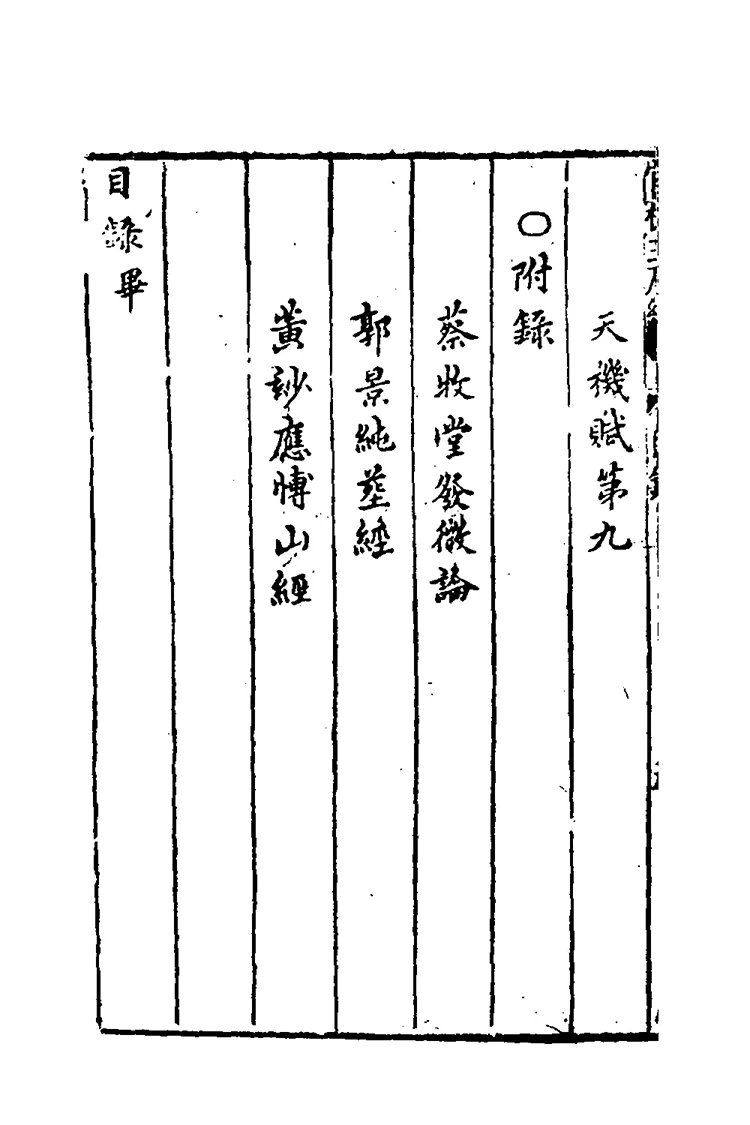 天機賦第九
○附錄
蔡牧堂發微論
郭景純葬經
黃妙應博山經
目錄畢